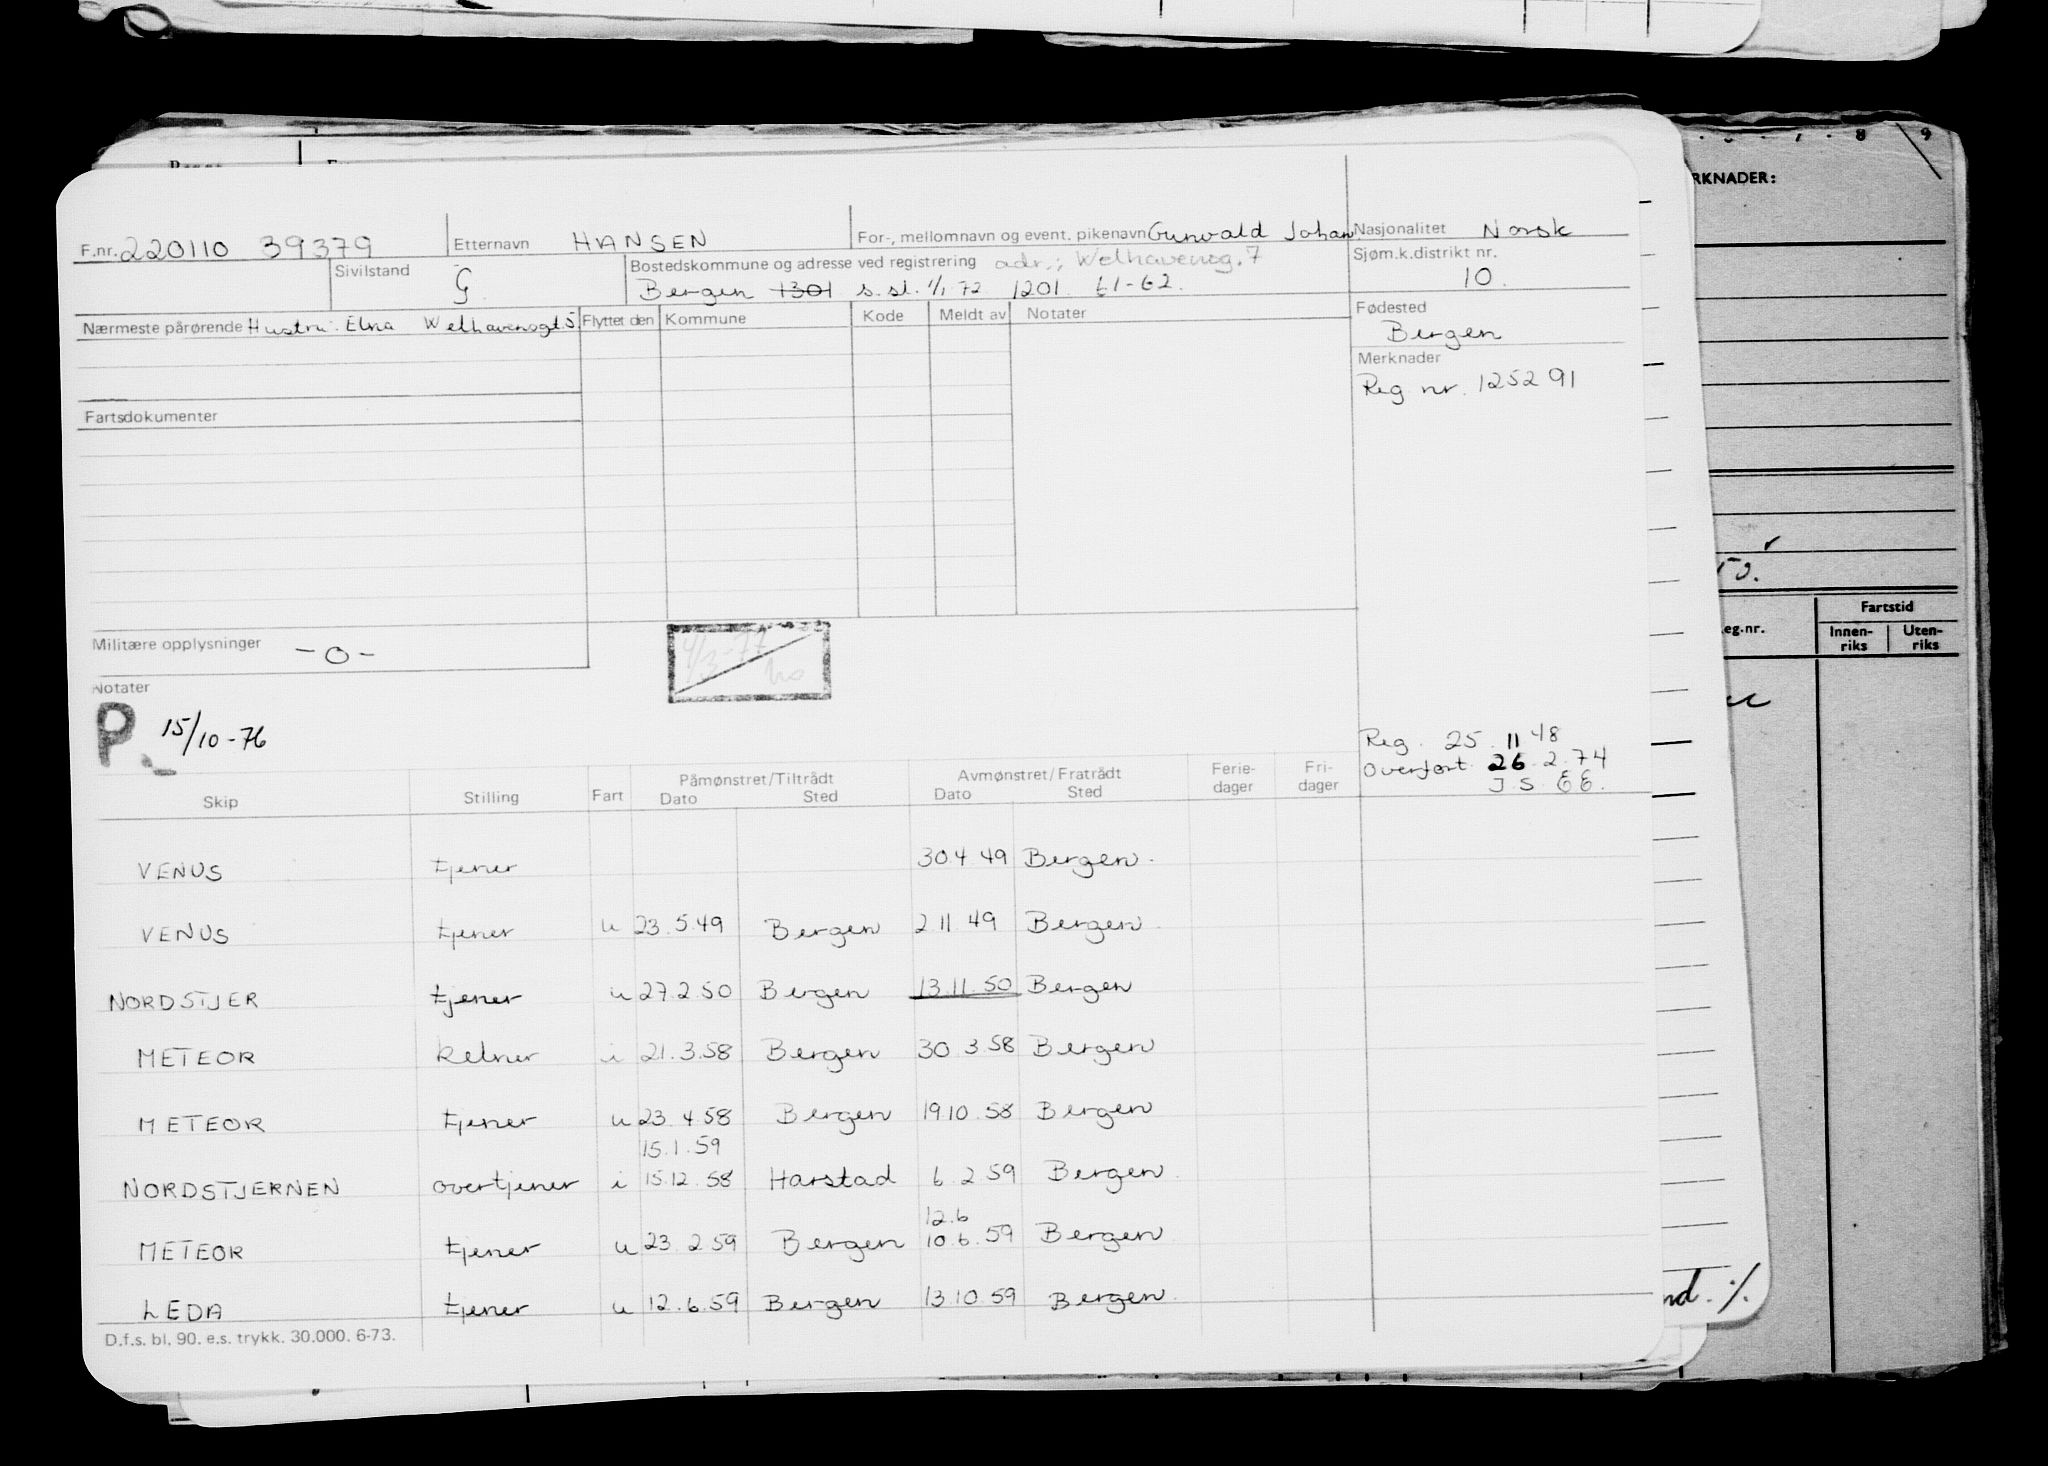 RKNADER:
8 9
F.nr. 220110 39379 Etternavn HANSEN For-, mellomnavn og event. pikenavn Gunvald Johan Nasjonalitet Norsk
Sivilstand G Bostedskommune og adresse ved registrering adr.; Welhavensg. 7 Sjøm.k.distrikt nr. 10.
Bergen 1301 s.sl. 1/1 72 1201 61-62.
Nærmeste pårørende Hustru: Elna Welhavensgt. 5 Flyttet den Kommune Kode Meldt av Notater Fødested
Bergen
Merknader
Reg nr. 125291
Fartsdokumenter
Militære opplysninger -0-
4/3-77
Notater
P. 15/10-76
Reg. 25.11 48
Overført 26.2.74
J.S. EE.
Skip Stilling Fart Påmønstret/Tiltrådt Avmønstret/Fratrådt Ferie- dager Fri- dager
Dato Sted Dato Sted
VENUS tjener 30.4 49 Bergen.
VENUS tjener u 23.5.49 Bergen 2 11 49 Bergen.
NORDSTJER tjener u 27.2.50 Bergen 13.11.50 Bergen
METEOR kelner i 21.3.58 Bergen 30 3 58 Bergen
METEOR tjener u 23.4.58 Bergen 19.10.58 Bergen
15.1.59
NORDSTJERNEN overtjener i 15.12.58 Harstad 6.2.59 Bergen.
12.6
METEOR tjener u 23.2.59 Bergen 10.6.59 Bergen
LEDA tjener u 12.6.59 Bergen 13.10.59 Bergen.
D.f.s. bl. 90. e.s. trykk. 30.000. 6-73.
eg.nr. Fartstid
Innen- riks Uten- riks
nd. ./.